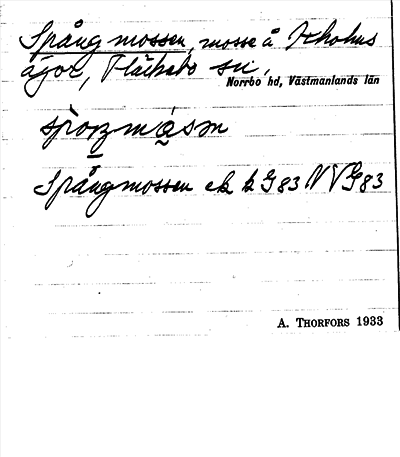 Spångmossen, mosse å Ickholms
ägor, Fläckebo sn,
Norrbo hd, Västmanlands län
Spångmossen ek k G83 NVG83
A. THORFORS 1933